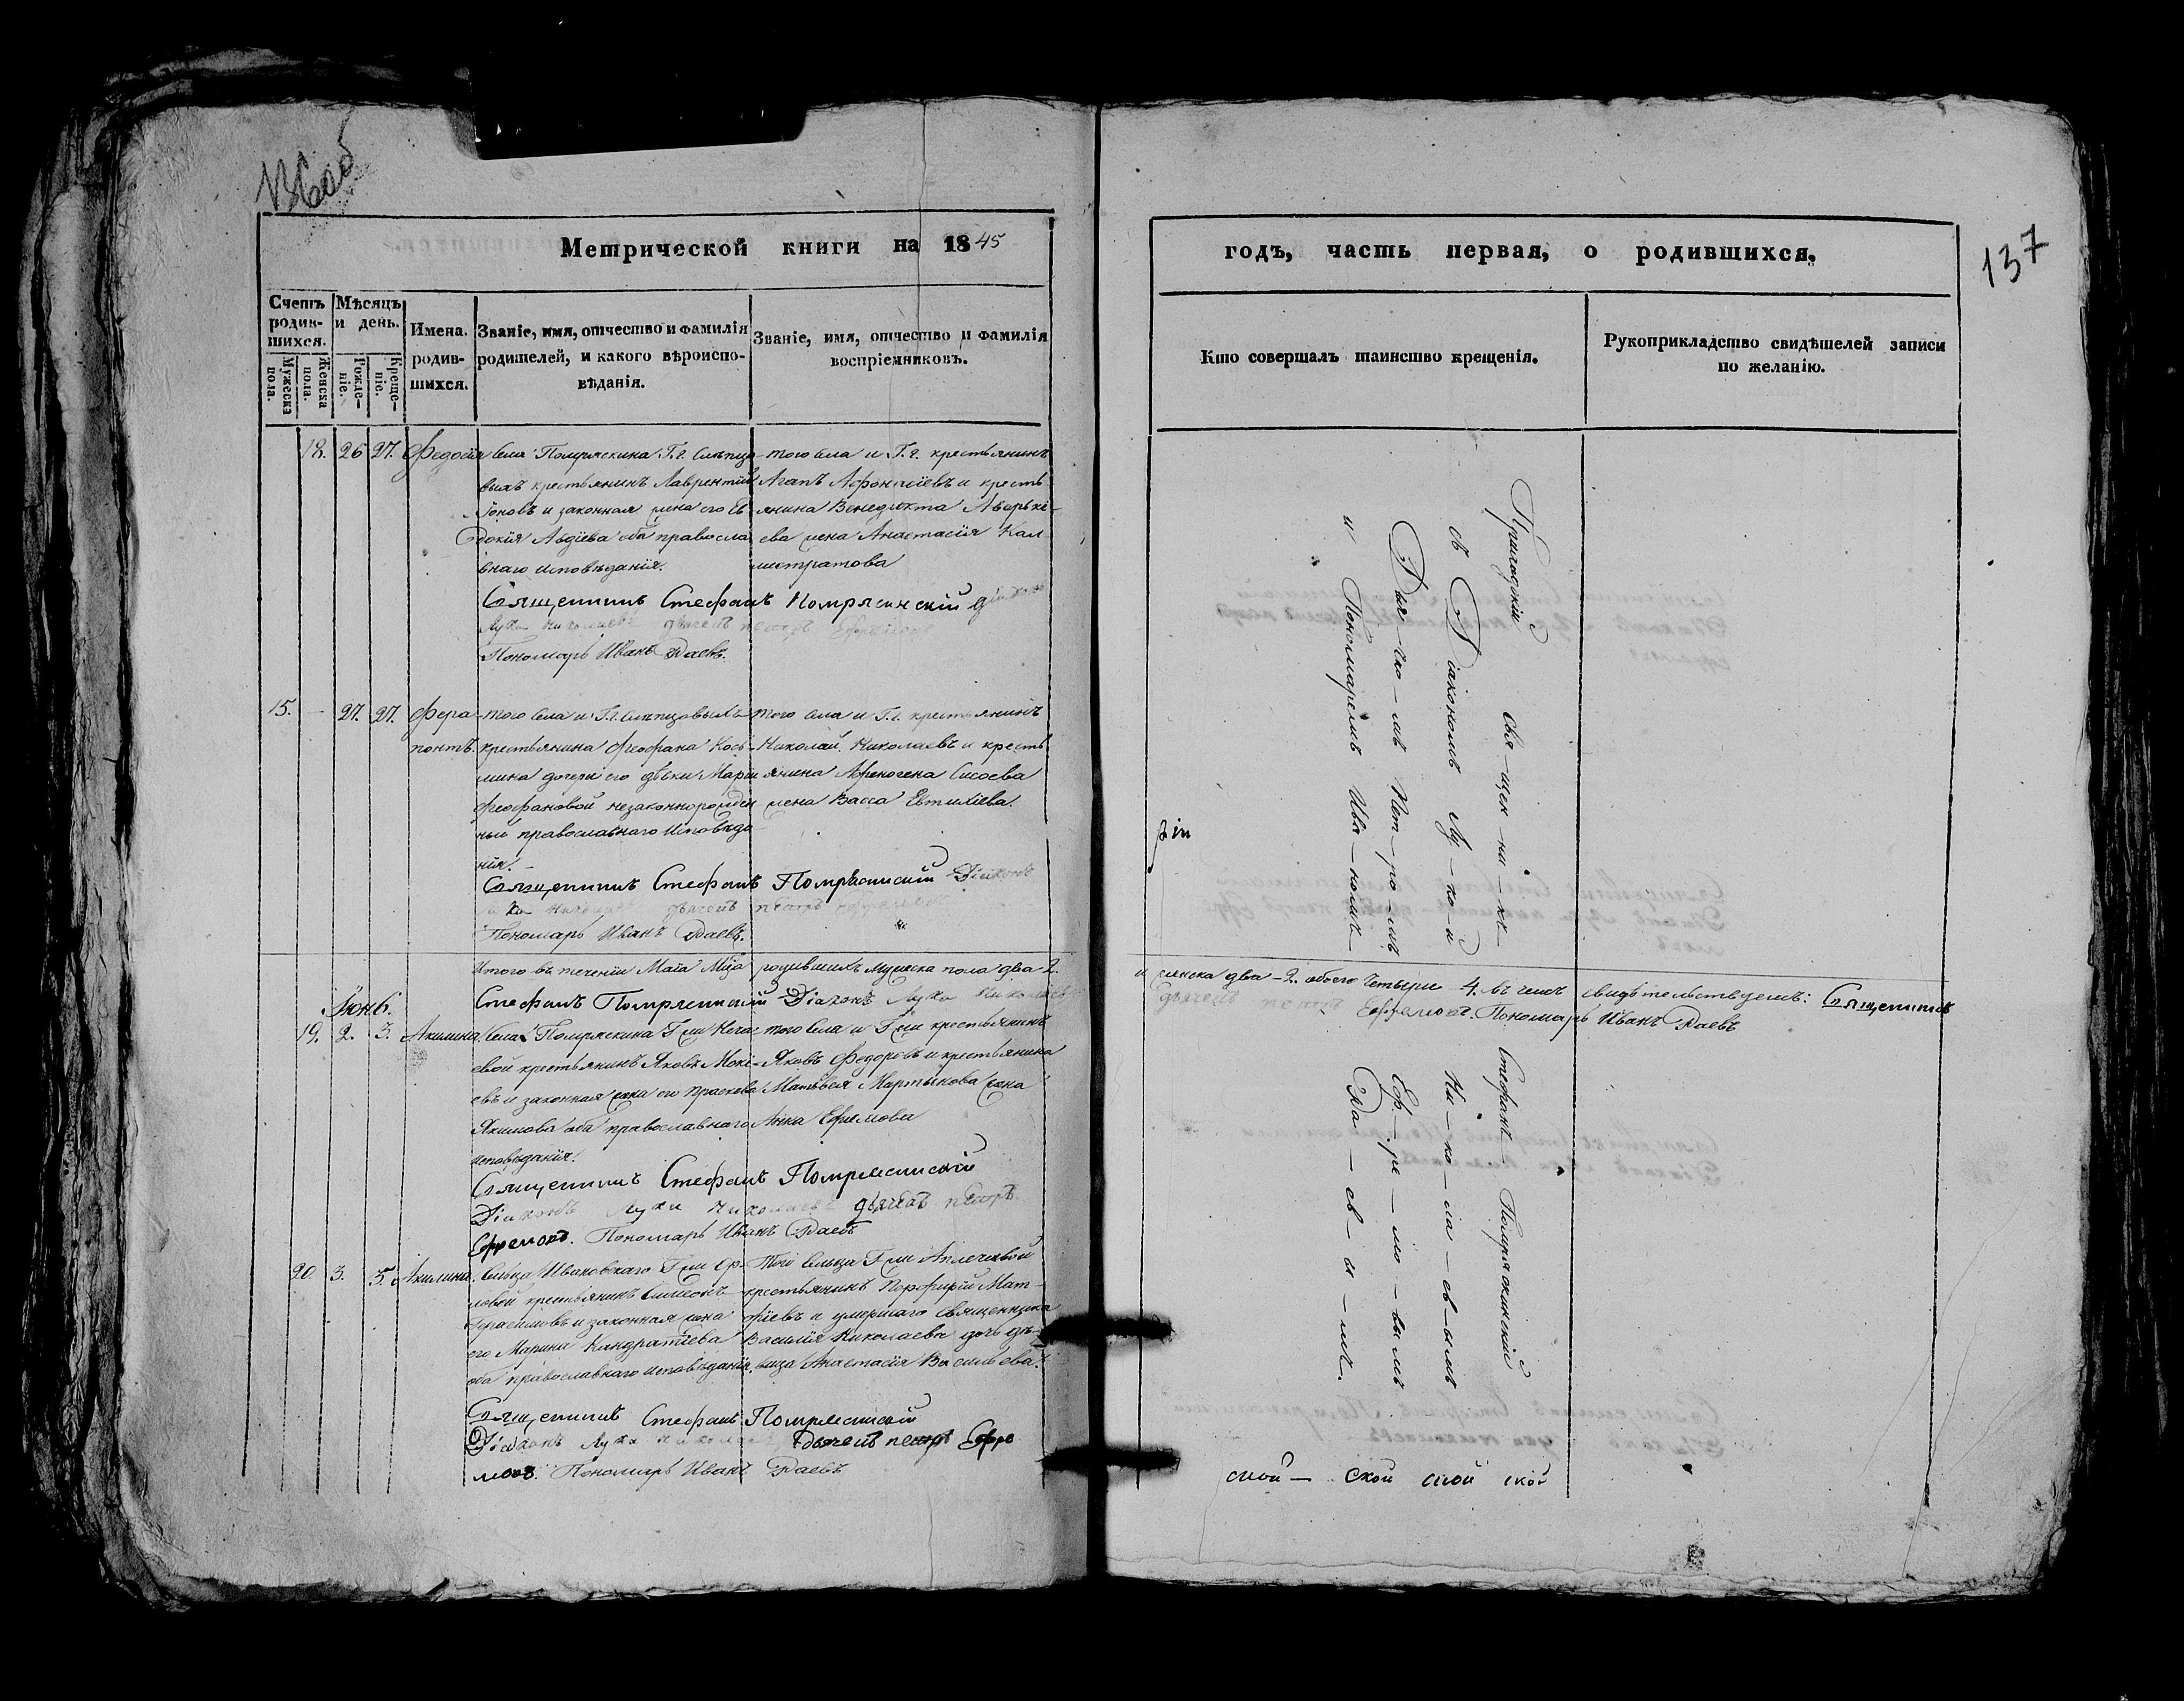 Метрической книги на 1845
годъ, часть первая, о родившихся.
137
Счетъ родив-шихся.
Мужеска пола.
Женска пола.
Мѣсяцъ и день.
Рожде-ніе.
Креще-ніе.
Имена родив-шихся.
Званіе, имя, отчество и фамилія родителей, и какого вѣроиспо-вѣданія.
Званіе, имя, отчество и фамилія воспріемниковъ.
Кто совершалъ таинство крещенія.
Рукоприкладство свидѣтелей записи по желанію.
18. 26 27. Федосія
Села Помряскина Г.г. Слѣпцо-
выхъ крестьянинъ Лаврентій
Іоновъ и законная жена его Ев
докія Авдіева оба правосла
внаго исповѣданія.
того села и Г.г. крестьянинъ
Агапъ Афонасіевъ и кресть
янина Венедикта Аверькі-
ева жена Анастасія Кал-
листратова
Священникъ Стефанъ Помряскинскій Діаконъ
Лука Николаевъ дьячекъ петръ Ефремовъ
Пономарь Иванъ Раевъ.
15. - 27. 27. Фера-
понтъ.
того села и Г.г. Слѣпцовыхъ
крестьянина Феофана Кось-
мина дочери его дѣвки Маріи
Феофановой незаконнорожден
ный православнаго исповѣда
нія.
того села и Г.г. крестьянинъ
Николай Николаевъ и кресть
янина Афиногена Сысоева
жена Васса Евтихіева.
Священникъ Стефанъ Помряскинскій Діаконъ
Лука Николаевъ дьячекъ петръ Ефремовъ
Пономарь Иванъ Раевъ.
Итого въ теченіи Маіа М͠ца родившихъ мужеска пола два 2.
и женска два - 2. обоего четыре 4. въ чемъ свидѣтельствуемъ: Священникъ
Стефанъ Помряскинскій Діаконъ Лука Николаевъ
дьячекъ петръ Ефремовъ. Пономарь Иванъ Раевъ
Іюнь.
19. 2. 3. Акилина.
Села Помряскина Г-жи Неча-
евой крестьянинъ Яковъ Мокі-
евъ и законная жена его Прасковья
Якимова оба православнаго
исповѣданія.
того села и Г-жи крестьянинъ
Яковъ Федоровъ и крестьянина
Матвѣя Мартынова жена
Анна Ефимова
Священникъ Стефанъ Помряскинскій
Діаконъ Лука Николаевъ дьячекъ петръ
Ефремовъ. Пономарь Иванъ Раевъ
20. 3. 5. Акилина.
Сельца Ивановскаго Г-жи Ор-
ловой крестьянинъ Симеонъ
Герасимовъ и законная жена
его Марина Кандратіева
оба православнаго исповѣданія.
Того сельца Г-жи
крестьянинъ Порфирій Мат-
фіевъ и умершаго священника
Василія Николаева дочь дѣ-
вица Анастасія Васильева.
Священникъ Стефанъ Помряскинскій
Діаконъ Лука Николаевъ дьячекъ петръ Ефре
мовъ. Пономарь Иванъ Раевъ
Свя-щен-ни-къ Стефанъ Помряскинскій
съ Діакономъ Лу-ко-й Ни-ко-ла-ев-ымъ
Дья-чко-мъ Пет-ро-мъ Еф-ре-мо-вымъ
и Пономаремъ Ива-номъ Ра-ев-ы-мъ.
ской - ской ской ской